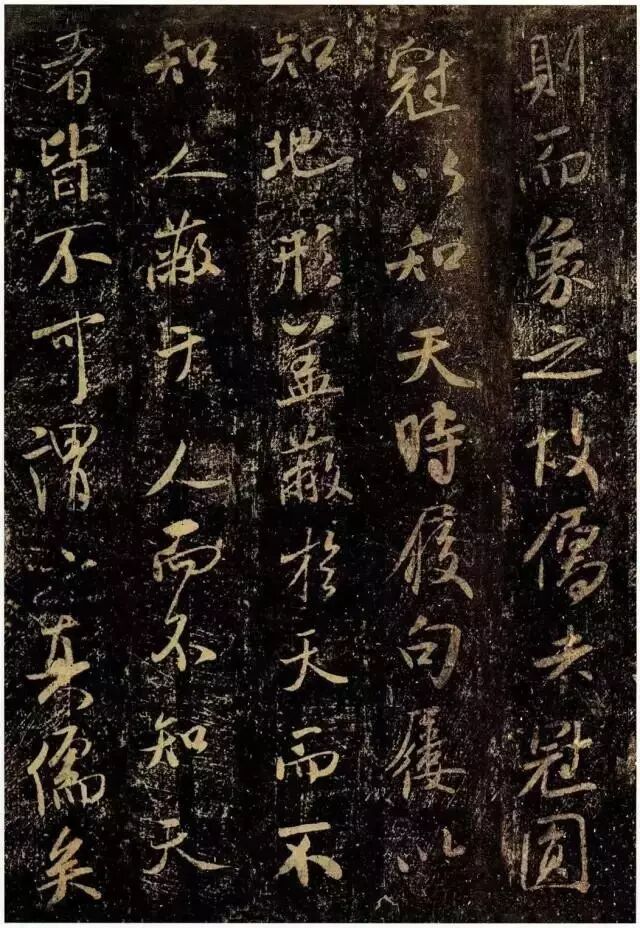 則而象之故儒者冠圓
冠以知天時履句屨以
知地形盖蔽於天而不
知人蔽于人而不知天
者皆不可謂之真儒矣